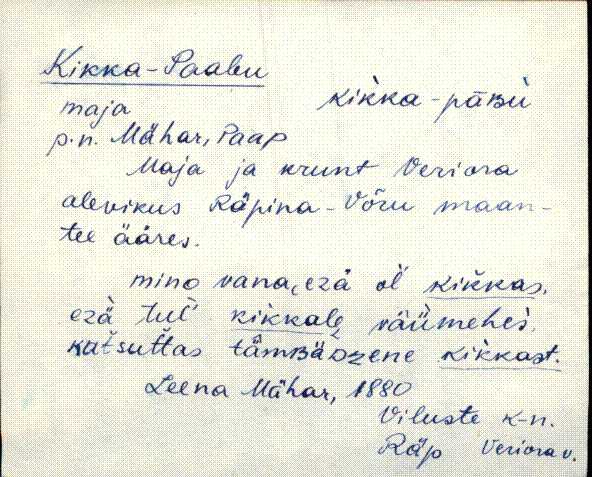 Kikka-Paabu
kikka-pāʙù
maja
p.n. Mähar, Paap
Maja ja krunt Veriora
alevikus Räpina-Võru maan-
tee ääres.
mino vana,ezä ol' kikkas.
ezä tul' kikkalẹ väümehes.
kutsuttas tämʙädzene kikkast.
Leena Mähar, 1880
Viluste k-n.
Räp Veriora v.